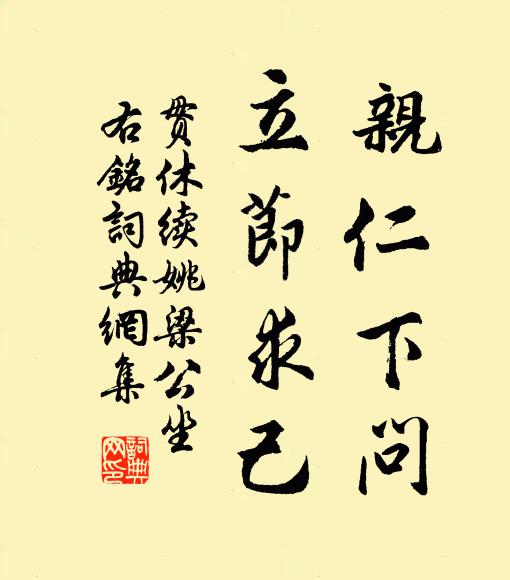 親仁下問
立節求己
貫休续姚梁公坐
右銘詞典網集
詞典网印